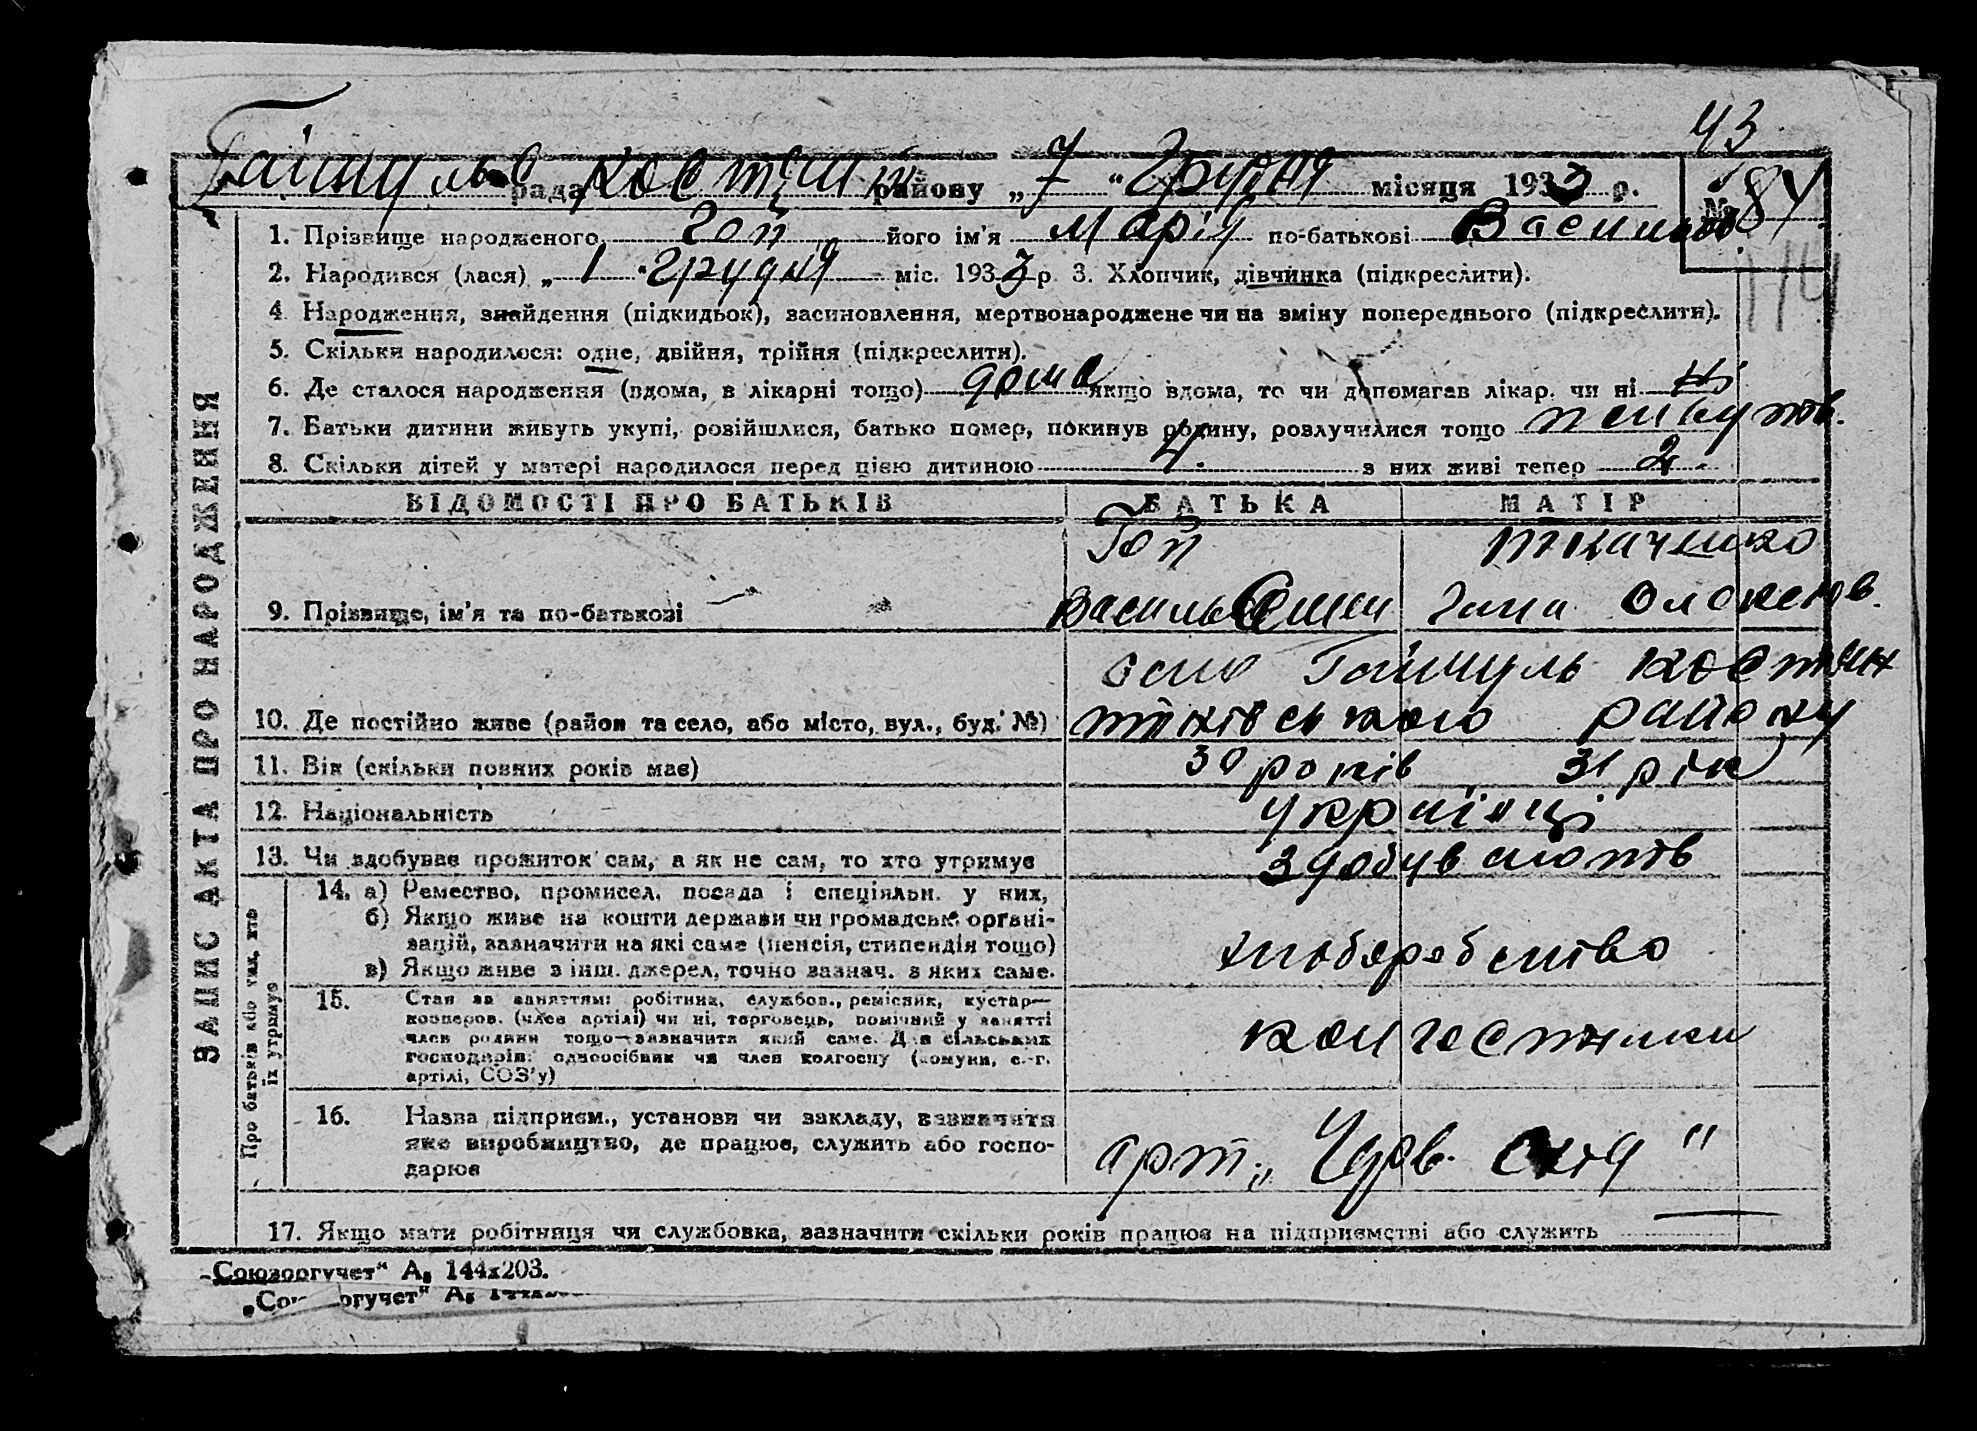 43
Гайчульс рада Костянт району „7" Грудня місяця 1933 р. № 84
114
1. Прізвище народженого Гоп його ім'я Марія по-батькові Василів
2. Народився (лася) „1" грудня міс. 1933 р 3. Хлопчик, дівчинка (підкреслити).
4 Народження, знайдення (підкидьок), засиновлення, мертвонароджене чи на зміну попереднього (підкреслити).
5. Скільки народилося: одне, двійня, трійня (підкреслити).
6. Де сталося народження (вдома, в лікарні тощо) дома якщо вдома, то чи допомагав лікар. чи ні ні
7. Батьки дитини живуть укупі, розійшлися, батько помер, покинув родину, розлучилися тощо
8. Скільки дітей у матері народилося перед цією дитиною 4. з них живі тепер 2.
ВІДОМОСТІ ПРО БАТЬКІВ БАТЬКА МАТІР
Гоп Ткаченко
9. Прізвище, ім'я та по-батькові Василь Гана Олексіїв.
село Гайчуль Костян
10. Де постійно живе (район та село, або місто, вул., буд. №) тинівського району
11. Вік (скільки повних років має) 30 років 31 рік
12. Національність українці
13. Чи здобував прожиток сам, а як не сам, то хто утримує здобув
14. а) Ремество, промисел, посада і спеціяльн. у них,
б) Якщо живе на кошти держави чи громадськ. органі-
зацій, зазначити на які саме (пенсія, стипендія тощо)
хлоборобство
в) Якщо живе з інш. джерел, точно зазнач. з яких саме.
15. Стан за заняттям: робітник, службов., ремісник, кустар—
кооперов. (член артілі) чи ні, торговець, помічний у занятті
член родини тощо—зазначити який саме. Для сільських
колгоспники
господарів: одноосібник чи член колгоспу (комуни, с.-г.
артілі, СОЗ'у)
16. Назва підприєм., установи чи закладу, зазначити
яке виробництво, де працює, служить або госпо-
дарює
арт. „Черв. "
17. Якщо мати робітниця чи службовка, зазначити скільки років працює на підприємстві або служить
ЗАПИС АКТА ПРО НАРОДЖЕННЯ
Про батьків або тих, хто
їх утримує
„Союзоргучет" А₅ 144х203.